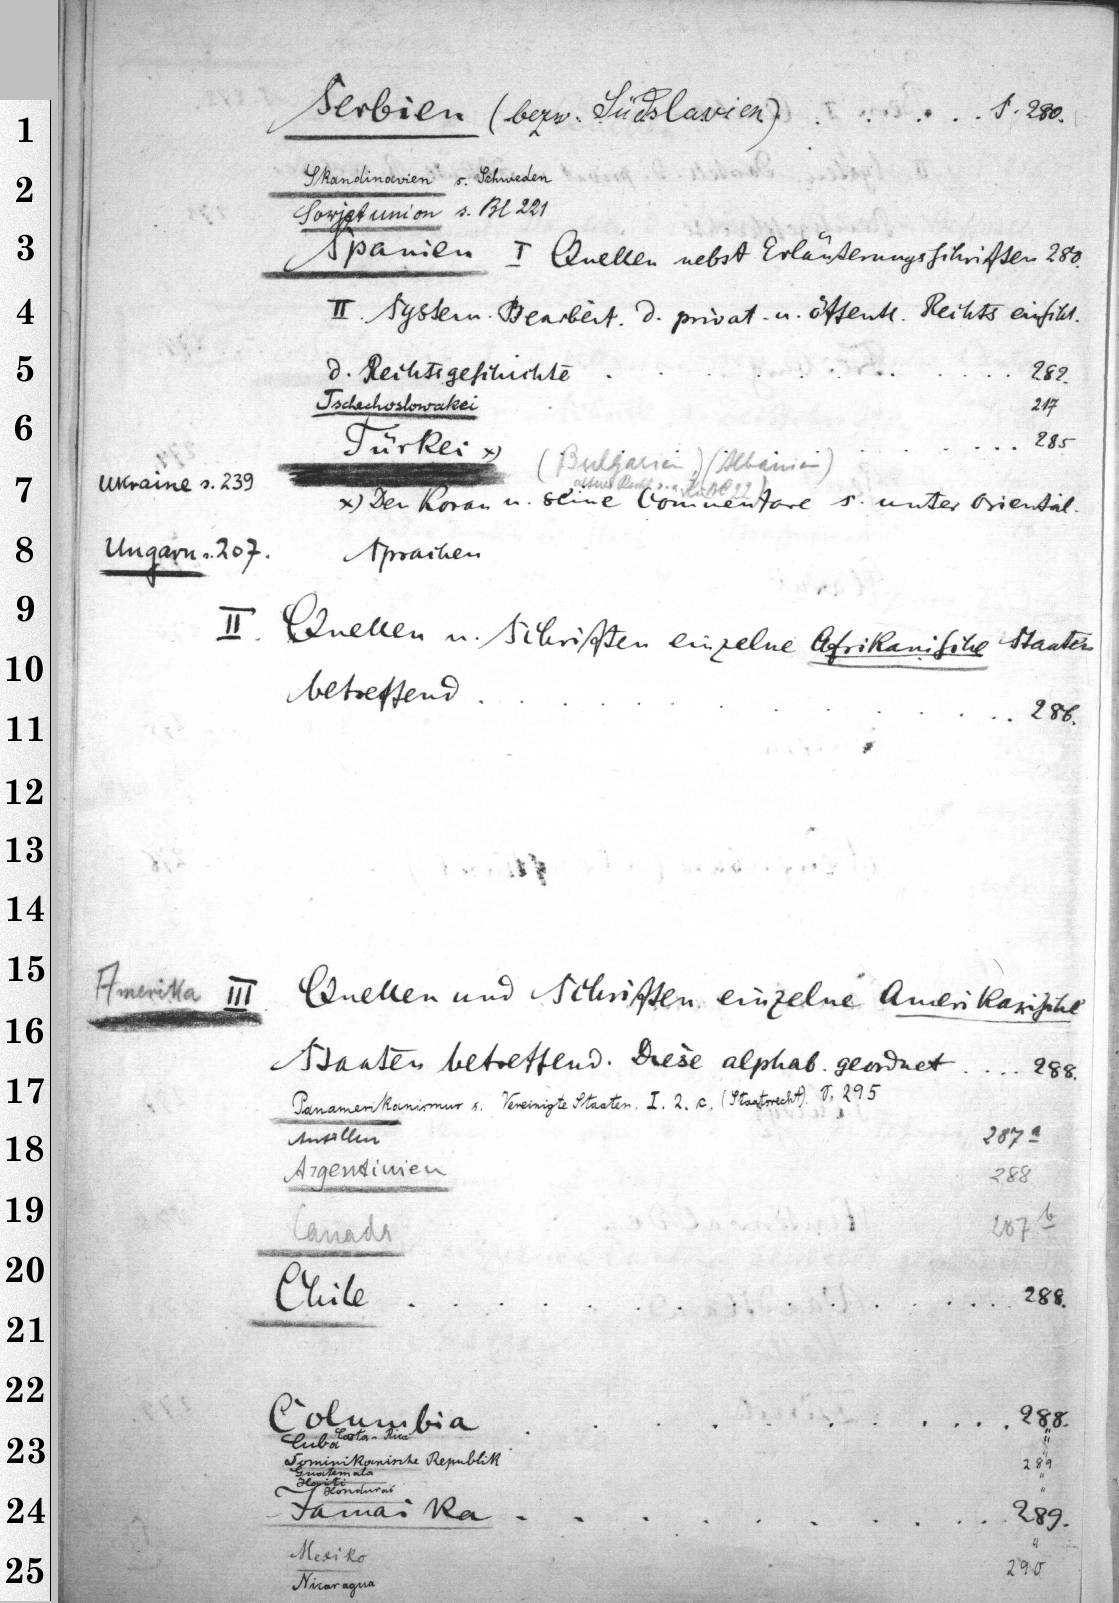 1 Serbien (bezw. Südslavien) . . . . . S. 280.
2 Skandinavien s. Schweden
Sowjetunion s. Bl 221
3 Spanien I Quellen nebst Erläuterungsschriften 280.
4 II. System. Bearbeit. d. privat. u. öffentl. Rechts einschl.
5 d. Rechtsgeschichte . . . . . . . . . . 282.
Tschechoslowakei 217
6 Türkei x) . . . . . . 285
(Bulgarien) (Albanien)
7 Ukraine s. 239 x) Der Koran u. seine Commentare s. unter Oriental.
8 Ungarn s. 207. Sprachen
9 II. Quellen u. Schriften einzelne Afrikanische Staaten
10 betreffend . . . . . . . . . . . 286.
11
12
13
14
15 Amerika III Quellen und Schriften einzelne Amerikanische
16 Staaten betreffend. Diese alphab. geordnet . . . . 288.
17 Panamerikanismus s. Vereinigte Staaten. I. 2. c. (Staatsrecht). S. 295
18 Antillen 287 a
Argentinien 288
19 Canada 287 b
20 Chile . . . . . . . . . . . . . 288.
21
22 Columbia . . . . . . . . . 288.
Costa-Rica "
23 Cuba "
Dominikanische Republik 289
Guatemala "
Haiti "
Honduras
24 Jamaika . . . . . . . . . . 289.
25 Mexiko "
Nicaragua 290